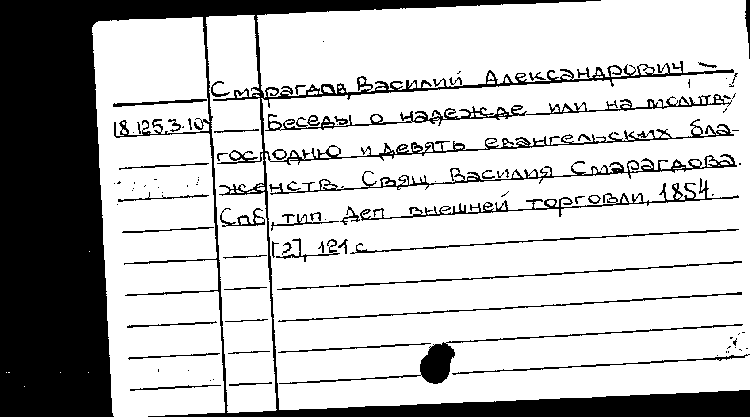 Смарагдов, Василий Александрович –
18.125.3.104 Беседы о надежде или на молитву
господню и девять евангельских бла-
женств. Свящ. Василия Смарагдова.
Спб, тип. Деп. внешней торговли, 1854.
[2], 121 с.